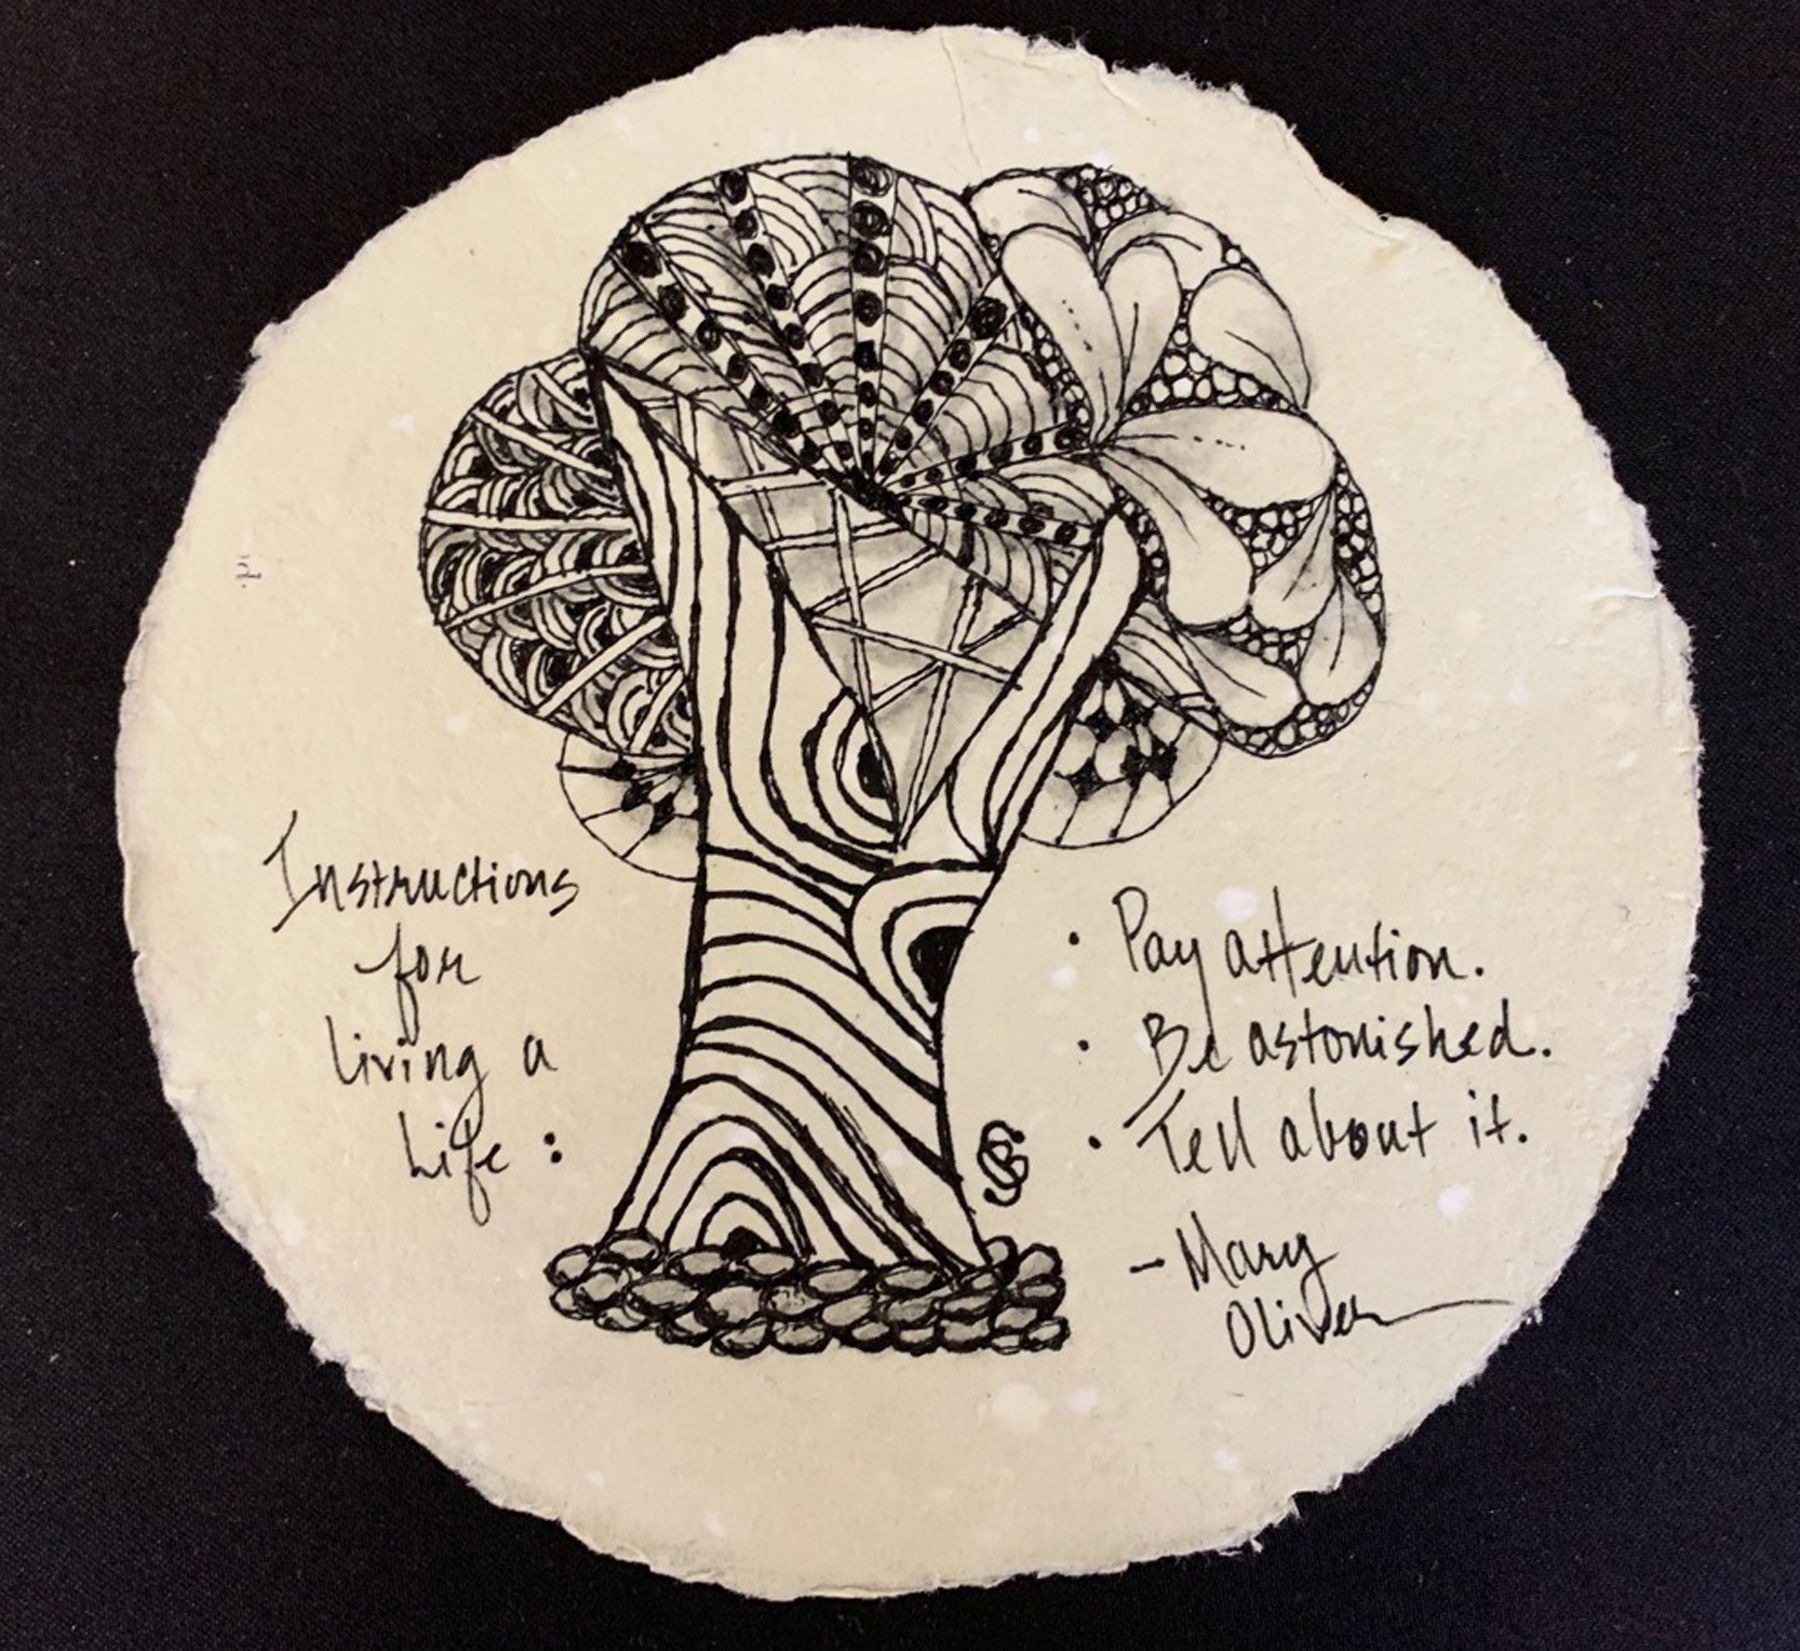 Instructions
for
living a
Life :
• Pay attention.
• Be astonished.
• Tell about it.
- Mary
Oliver